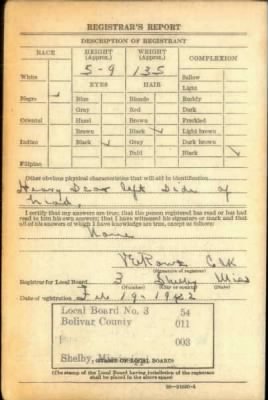 REGISTRAR'S REPORT
DESCRIPTION OF REGISTRANT
RACE HEIGHT (Approx.) WEIGHT (Approx.) COMPLEXION
5-9 135
White Sallow
EYES HAIR Light
Negro ✓ Blue Blonde Ruddy
Gray Red Dark
Oriental Hazel Brown Freckled
Brown Black ✓ Light brown
Indian Black ✓ Gray Dark brown
Bald Black ✓
Filipino
Other obvious physical characteristics that will aid in identification
Heavy Scar left Side of
head,
I certify that my answers are true; that the person registered has read or has had
read to him his own answers; that I have witnessed his signature or mark and that
all of his answers of which I have knowledge are true, except as follows:
None
Clk
(Signature of registrar)
Registrar for Local Board 3 Shelby Miss
(Number) (State)
Date of registration Feb 19-1942
Local Board No. 3 54
Bolivar County 011
003
Shelby,
(STAMP OF LOCAL BOARD)
(The stamp of the Local Board having jurisdiction of the registrant
shall be placed in the above space)